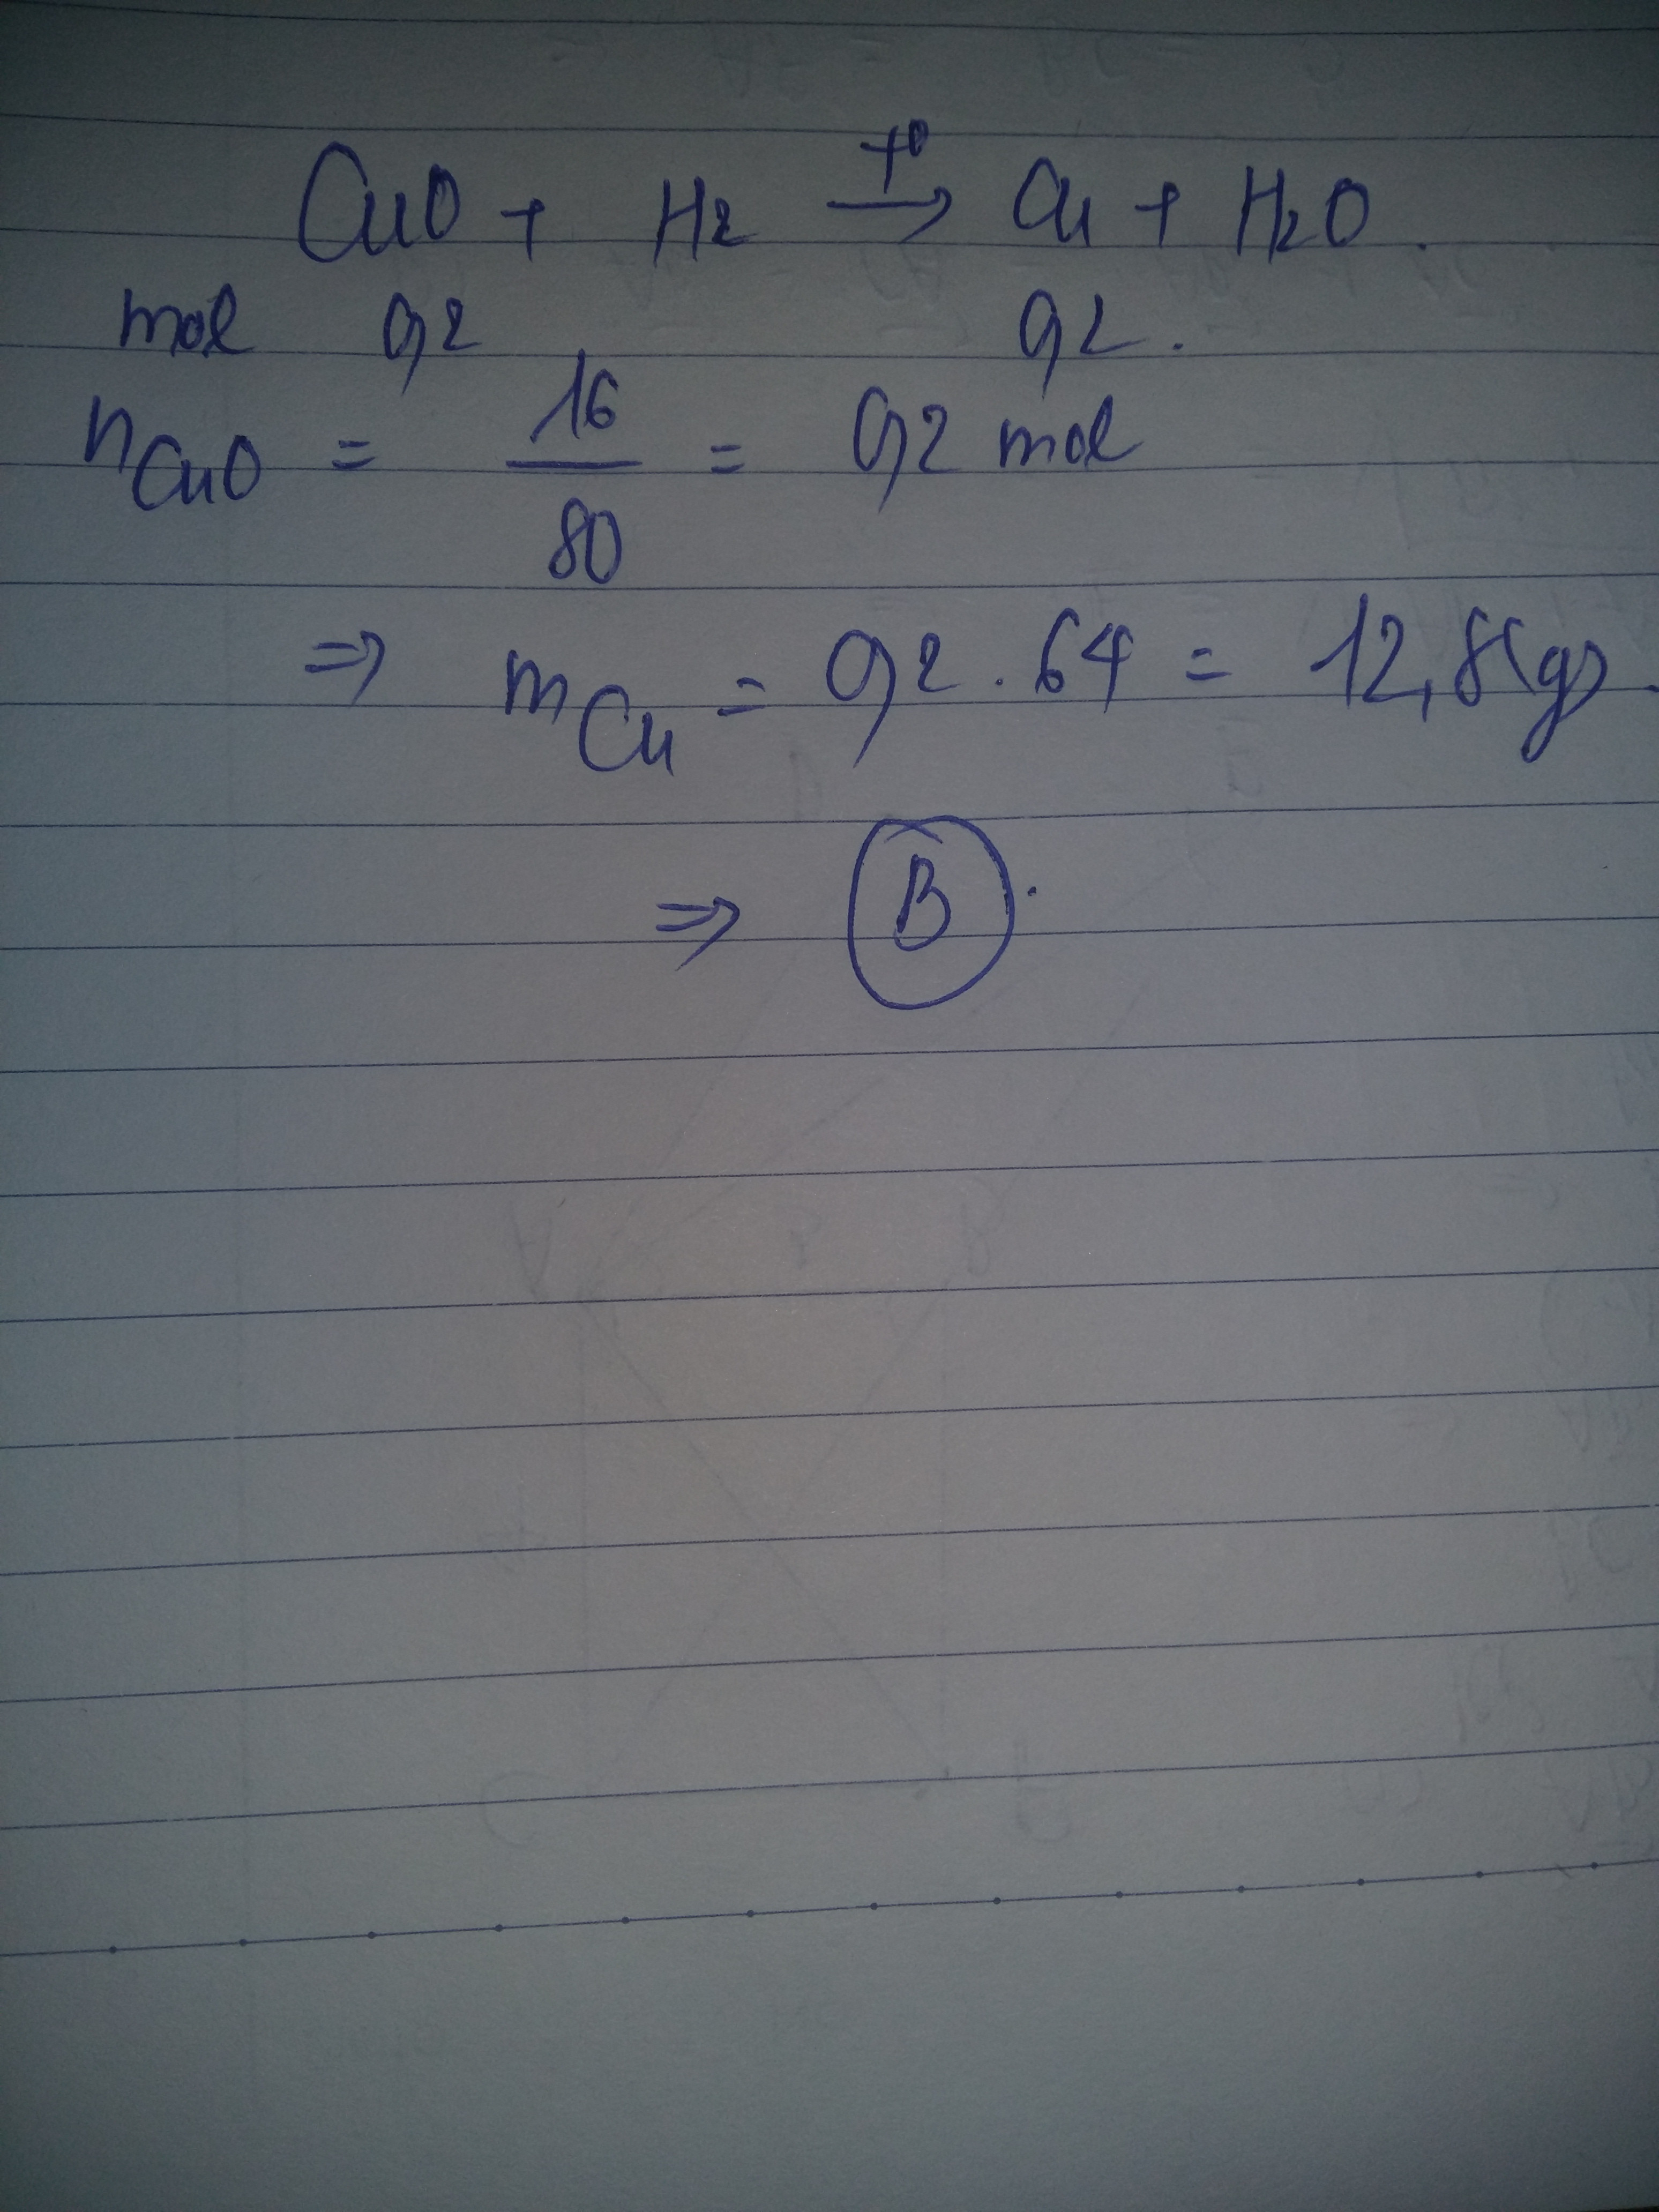 CuO + H2 t° → Cu + H2O.
mol 0,2 0,2.
nCuO = 16/80 = 0,2 mol
⇒ mCu = 0,2 . 64 = 12,8(g).
⇒ B.